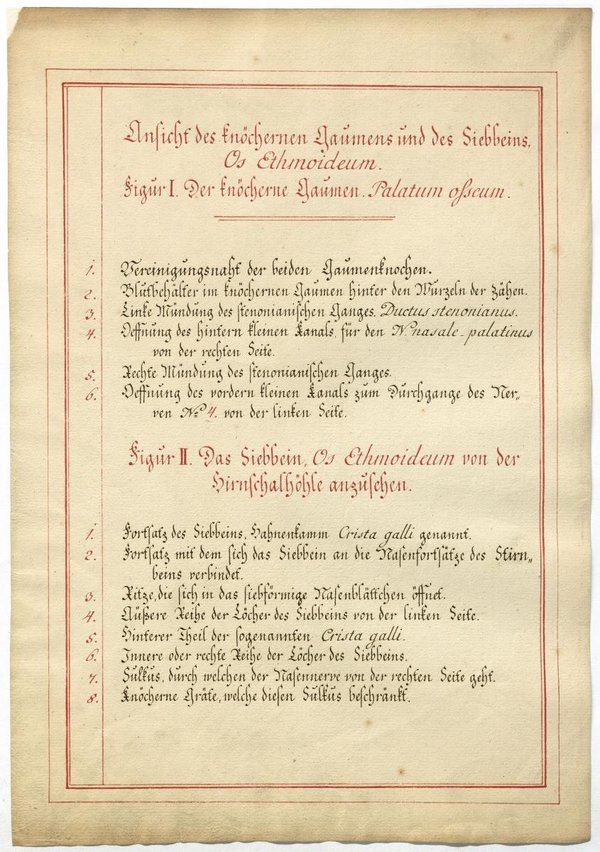 Ansicht des knöchernen Gaumens und des Siebbeins,
Os Ethmoideum.
Figur I. Der knöcherne Gaumen. Palatum osseum.
1. Vereinigungsnaht der beiden Gaumenknochen.
2. Blutbehälter im knöchernen Gaumen hinter den Wurzeln der Zähen.
3. Linke Mündung des stenonianischen Ganges. Ductus stenonianus.
4. Oeffnung des hintern kleinen Kanals, für den N. nasale-palatinus
von der rechten Seite.
5. Rechte Mündung des stenonianischen Ganges.
6. Oeffnung des vordern kleinen Kanals zum Durchgange des Ner-
ven No 4. von der linken Seite.
Figur II. Das Siebbein, Os Ethmoideum von der
Hirnschalhöhle anzusehen.
1. Fortsatz des Siebbeins, Hahnenkamm Crista galli genannt.
2. Fortsatz mit dem sich das Siebbein an die Nasenfortsätze des Stirn-
beins verbindet.
3. Ritze, die sich in das siebförmige Nasenblättchen öffnet.
4. Äußere Reihe der Löcher des Siebbeins von der linken Seite.
5. Hinterer Theil der sogenannten Crista galli.
6. Innere oder rechte Reihe der Löcher des Siebbeins.
7. Sulkus, durch welchen der Nasennerve von der rechten Seite geht.
8. Knöcherne Gräte, welche diesen Sulkus beschränkt.